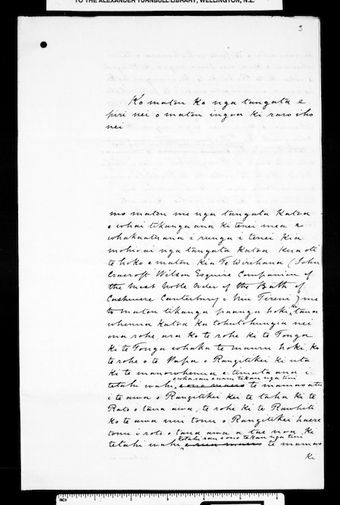 TO THE ALEXANDER TURNBULL LIBRARY, WELLINGTON, N.Z.
3
Ko matou ko nga tangata e
piri nei o matou ingoa ki raro iho
nei
mo matou me nga tangata katoa
e whai tikanga ana ki tenei mea e
whakaaturia i runga i tenei kia
mohio ai nga tangata katoa kua oti
te hoko e matou kia Te Wirihana (John
Cracroft Wilson Esquire Companion of
the Most Noble Order of the Bath of
Cashmere Canterbury o Niu Tireni) me
to matou tikanga paanga hoki ki taua
whenua katoa ka tohutohungia nei
ona rohe ara ko te rohe ki te Tonga
ki te Tonga whaka te mauru hoki ko
te rohe o te Wapu o Rangitikei ki uta
ki te manawhenua e timata ana i
tetahi wahi te mamao atu
i te awa o Rangitikei kei te taha ki te
Rato o taua awa, te rohe ki te Rawhiti
ko te awa nui tonu o Rangitikei haere
tonu i roto o taua awa a tae noa ki
tetahi wahi te mamao
ki